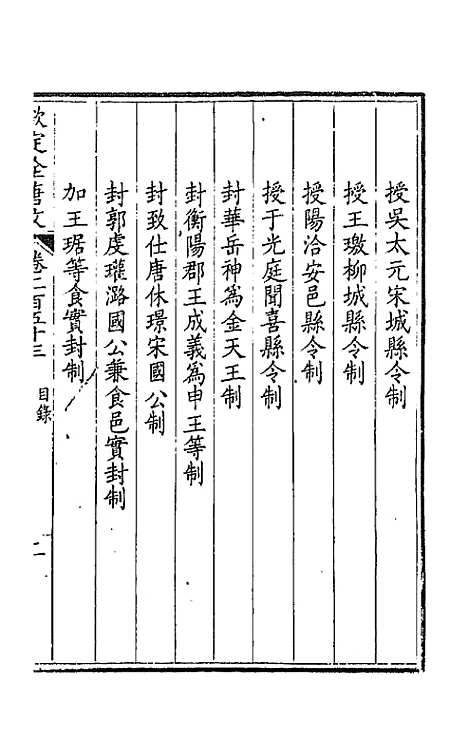 授吳太元宋城縣令制
授王璬柳城縣令制
授陽洽安邑縣令制
授于光庭聞喜縣令制
封華岳神為金天王制
封衡陽郡王成義為申王等制
封致仕唐休璟宋國公制
封郭虔瓘潞國公兼食邑實封制
加王琚等食實封制
欽定全唐文 卷二百五十三 目錄